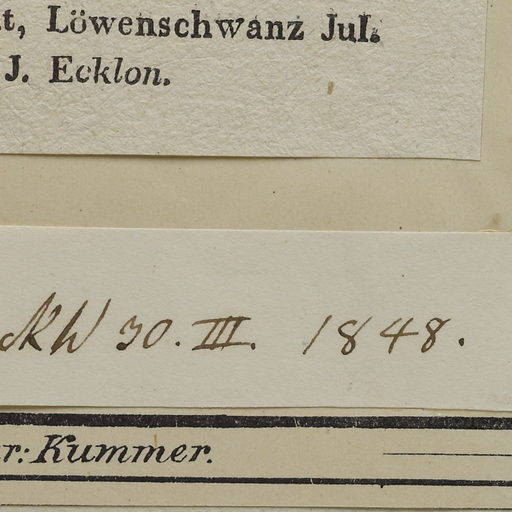 t, Löwenschwanz Jul.
J. Ecklon.
30. III. 1848.
r: Kummer.